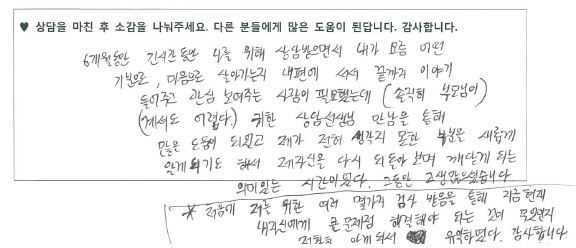 ♥ 상담을 마친 후 소감을 나눠주세요. 다른 분들에게 많은 도움이 된답니다. 감사합니다.
6개월동안 긴시간동안 나를 위해 상담받으면서 내가 요즘 어떤
기분으로, 마음으로 살아가는지 내편에 서서 끝까지 이야기
들어주고 관심 보여주는 사람이 필요했는데 (솔직히 부모님이)
(계셔도 어렵다) 귀한 상담선생님 만남을 통해
많은 도움이 되었고 제가 전혀 생각지 못한 부분을 새롭게
알게되기도 해서 제자신을 다시 되돌아보며 깨닫게 되는
의미있는 시간이었다. 그동안 고생많으셨습니다
* 처음에 저를 위한 여러 몇가지 검사 받음을 통해 지금현재
내자신에게 큰 문제점 해결해야 되는 것이 무엇인지
정확히 알게 되서 유익하였다. 감사합니다.